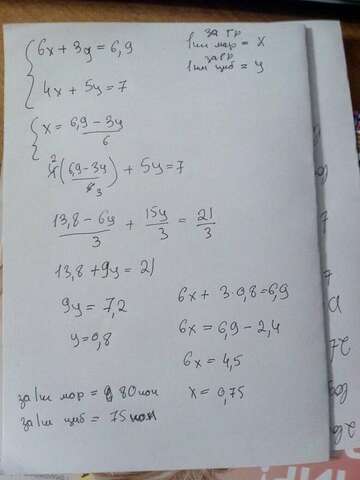 6x + 3y = 6,9
4x + 5y = 7
за гр
1 км мор = x
за гр
= y
x = 6,9 - 3y / 6
4 ( 6,9 - 3y / 6 ) + 5y = 7
2
3
13,8 - 6y / 3 + 15y / 3 = 21 / 3
13,8 + 9y = 21
9y = 7,2
y = 0,8
6x + 3 · 0,8 = 6,9
6x = 6,9 - 2,4
6x = 4,5
x = 0,75
за 1 мор = 80 коп
за 1 = 75 коп